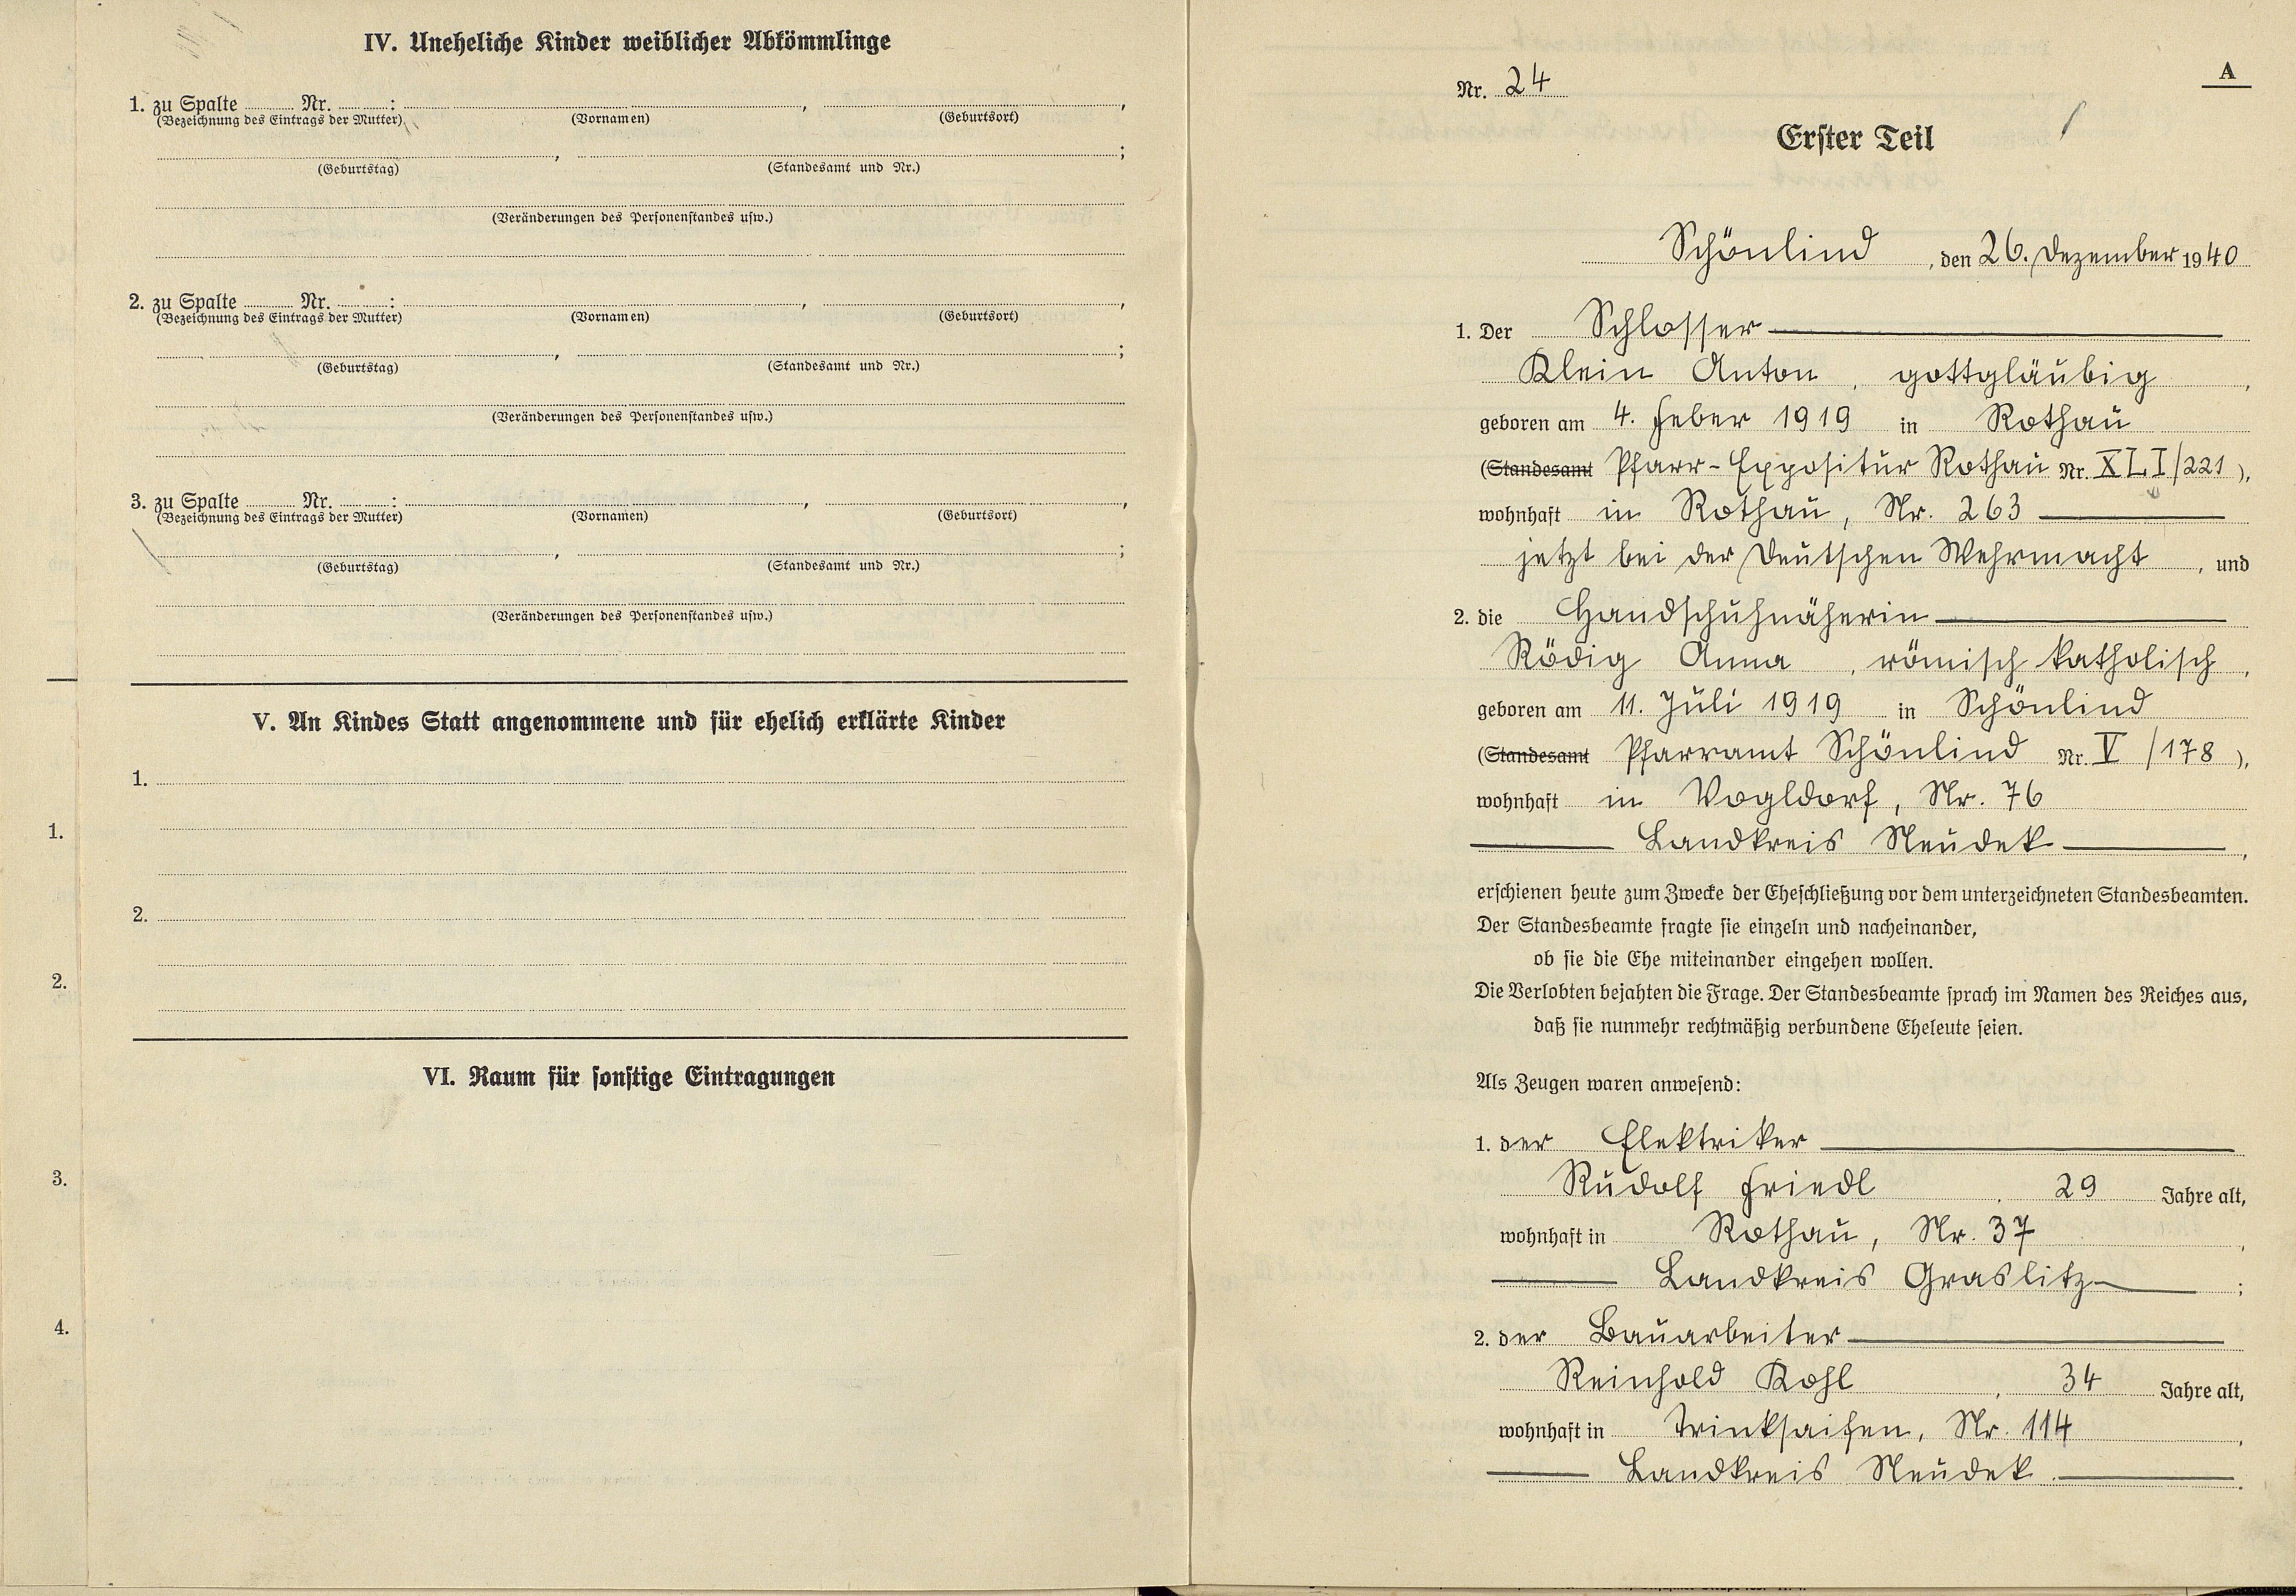 IV. Uneheliche Kinder weiblicher Abkömmlinge
1. zu Spalte ........ Nr. ........ : ........ , ........ ,
(Bezeichnung des Eintrags der Mutter) (Vornamen) (Geburtsort)
........ , ........ ;
(Geburtstag) (Standesamt und Nr.)
(Veränderungen des Personenstandes usw.)
2. zu Spalte ........ Nr. ........ : ........ , ........ ,
(Bezeichnung des Eintrags der Mutter) (Vornamen) (Geburtsort)
........ , ........ ;
(Geburtstag) (Standesamt und Nr.)
(Veränderungen des Personenstandes usw.)
3. zu Spalte ........ Nr. ........ : ........ , ........ ,
(Bezeichnung des Eintrags der Mutter) (Vornamen) (Geburtsort)
........ , ........ ;
(Geburtstag) (Standesamt und Nr.)
(Veränderungen des Personenstandes usw.)
V. An Kindes Statt angenommene und für ehelich erklärte Kinder
1.
2.
VI. Raum für sonstige Eintragungen
1.
2.
3.
4.
A
Nr. 24
Erster Teil
Schönlind , den 26. Dezember 1940
1. Der Schlosser
Klein Anton , gottgläubig ,
geboren am 4. Feber 1919 in Rothau
(Standesamt Pfarr-Expositur Rothau Nr. XLI/221 ),
wohnhaft in Rothau, Nr. 263
jetzt bei der Deutschen Wehrmacht , und
2. die Handschuhnäherin
Rödig Anna , römisch katholisch ,
geboren am 11. Juli 1919 in Schönlind
(Standesamt Pfarramt Schönlind Nr. V /178 ),
wohnhaft in Vogldorf, Nr. 76
Landkreis Neudek ,
erschienen heute zum Zwecke der Eheschließung vor dem unterzeichneten Standesbeamten.
Der Standesbeamte fragte sie einzeln und nacheinander,
ob sie die Ehe miteinander eingehen wollen.
Die Verlobten bejahten die Frage. Der Standesbeamte sprach im Namen des Reiches aus,
daß sie nunmehr rechtmäßig verbundene Eheleute seien.
Als Zeugen waren anwesend:
1. der Elektriker
Rudolf Friedl , 29 Jahre alt,
wohnhaft in Rothau, Nr. 37 ,
Landkreis Graslitz ;
2. der Bauarbeiter
Reinhold Kohl , 34 Jahre alt,
wohnhaft in Trinksaifen, Nr. 114 ,
Landkreis Neudek .